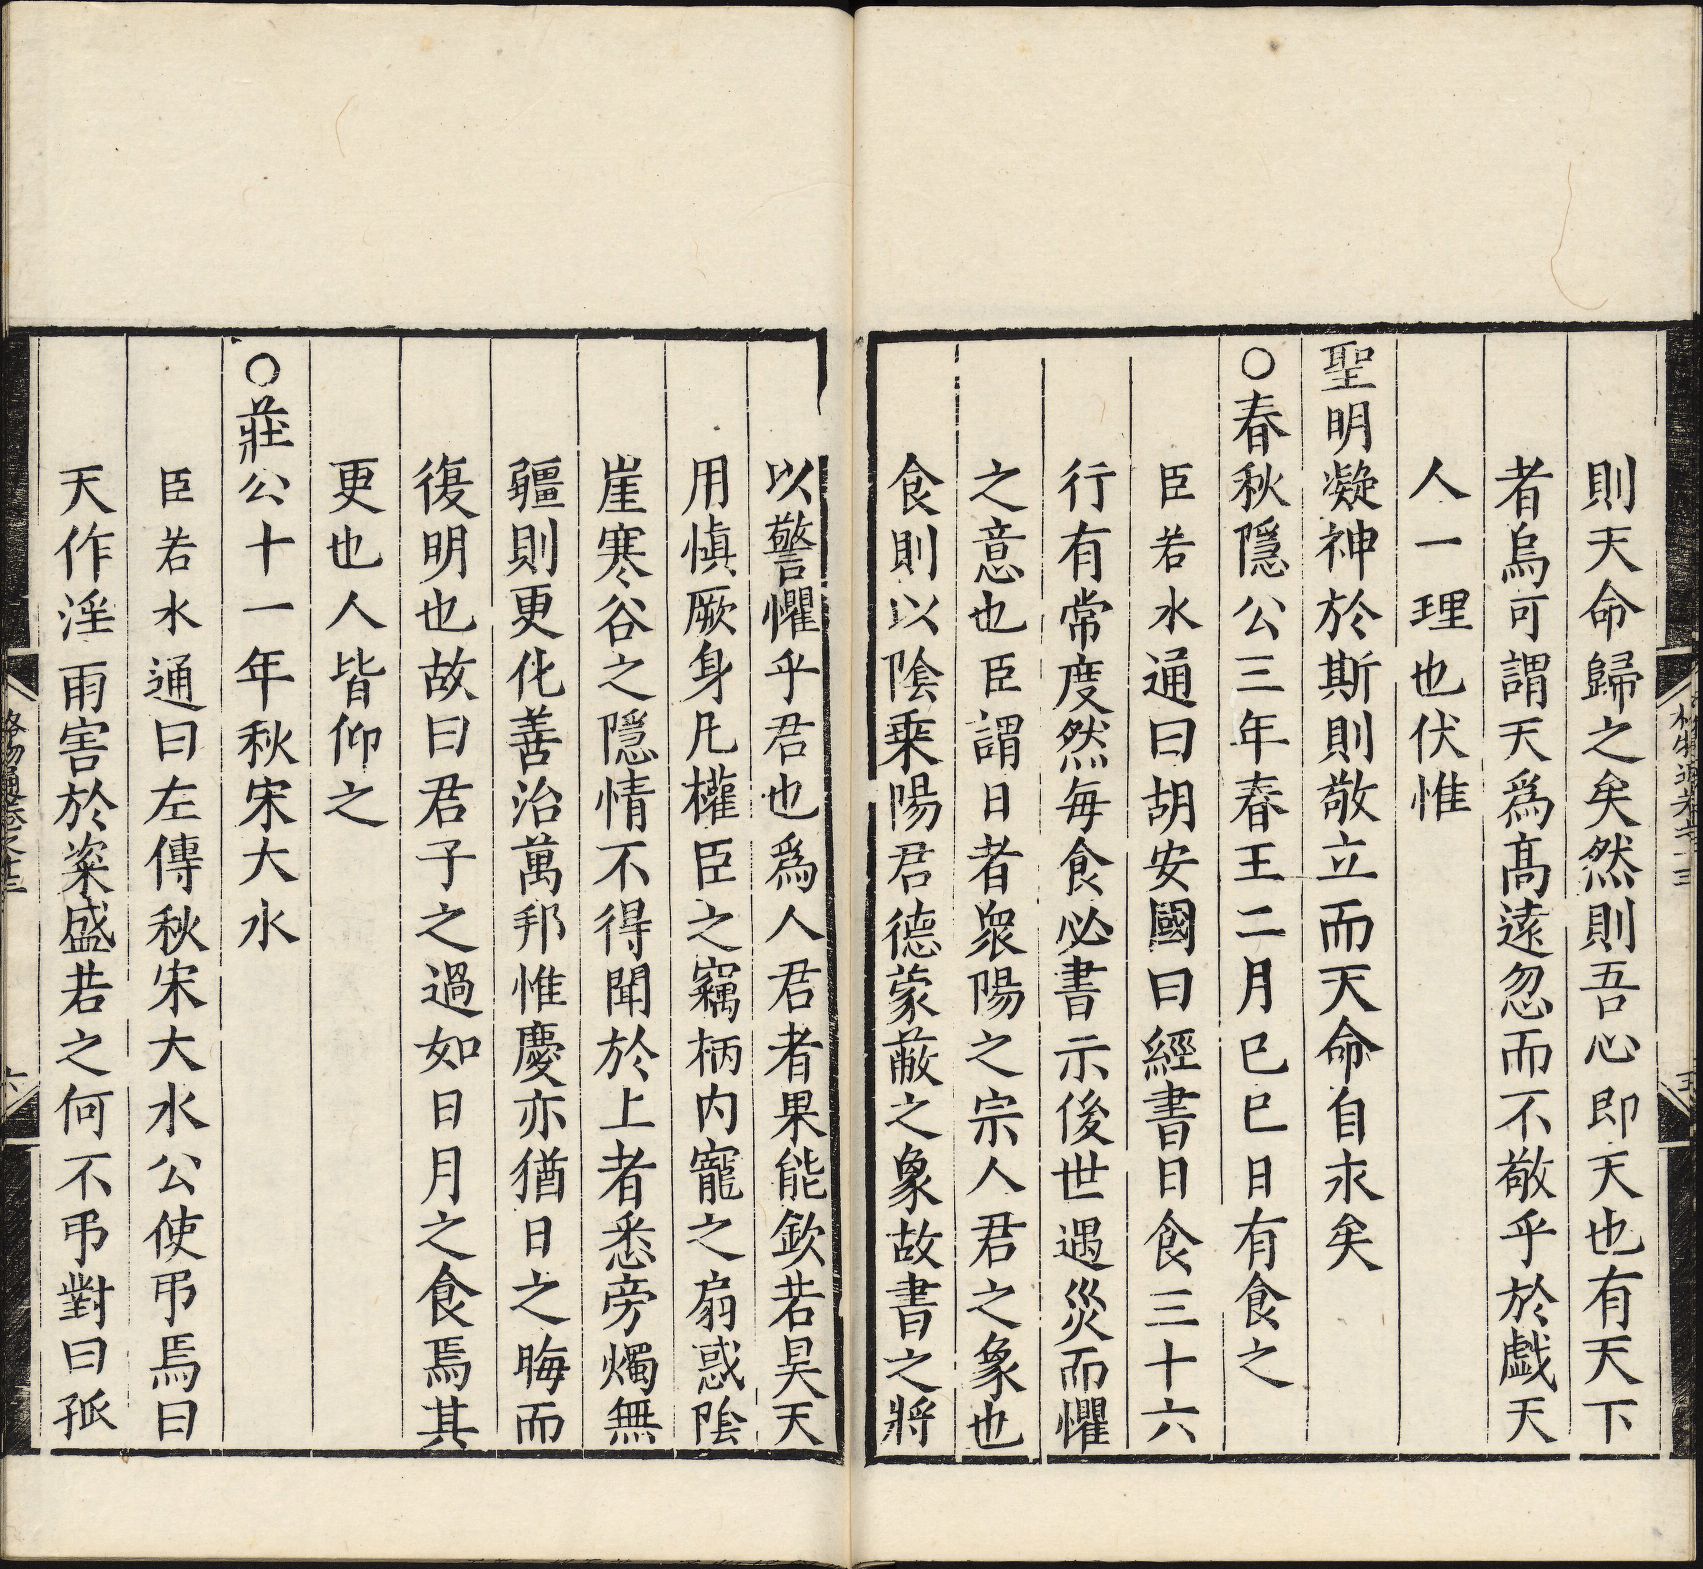 則天命歸之矣然則吾心即天也有天下
者烏可謂天爲髙遠忽而不敬乎於戯天
人一理也伏惟
聖明凝神於斯則敬立而天命自求矣
○春秋隱公三年春王二月己巳日有食之
臣若水通曰胡安國曰經書日食三十六
行有常度然每食必書示後世遇災而懼
之意也臣謂日者衆陽之宗人君之象也
食則以陰乗陽君德蒙蔽之象故書之將
以警懼乎君也爲人君者果能欽若昊天
用慎厥身凡權臣之竊柄内寵之扇惑陰
崖寒谷之隱情不得聞於上者悉旁燭無
疆則更化善治萬邦惟慶亦猶日之晦而
復明也故曰君子之過如日月之食焉其
更也人皆仰之
○莊公十一年秋宋大水
臣若水通曰左傳秋宋大水公使弔焉曰
天作淫雨害於粢盛若之何不弔對曰孤
格物通卷之十三
六